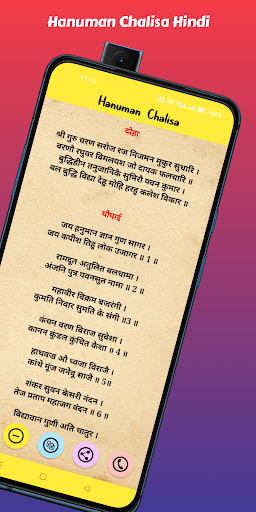 Hanuman Chalisa Hindi
Hanuman Chalisa
दोहा
श्री गुरु चरण सरोज रज निजमन मुकुर सुधारि
वरणौ रघुवर बिमलयश जो दायक फलचारि
बुद्धिहीन तनुजानिके सुमिरौ पवन कुमार ।
बल बुद्धि विद्या देहु मोहि हरहु कलेश विकार ।
चौपाई
जय हनुमान ज्ञान गुण सागर ।
जय कपीश तिहु लोक उजागर ॥ 1 ॥
रामदूत अतुलित बलधामा ।
अंजनि पुत्र पवनसुत नामा ॥ 2 ॥
महावीर विक्रम बजरंगी ।
कुमति निवार सुमति के संगी ॥3 ॥
कंचन वरण विराज सुवेशा ।
कानन कुंडल कुंचित केशा ॥ 4 ॥
हाथवज्र औ ध्वजा विराजै ।
कांधे मूंज जनेवू साजै ॥ 5॥
शंकर सुवन केसरी नंदन ।
तेज प्रताप महाजग वंदन ॥ 6 ॥
विद्यावान गुणी अति चातुर ।